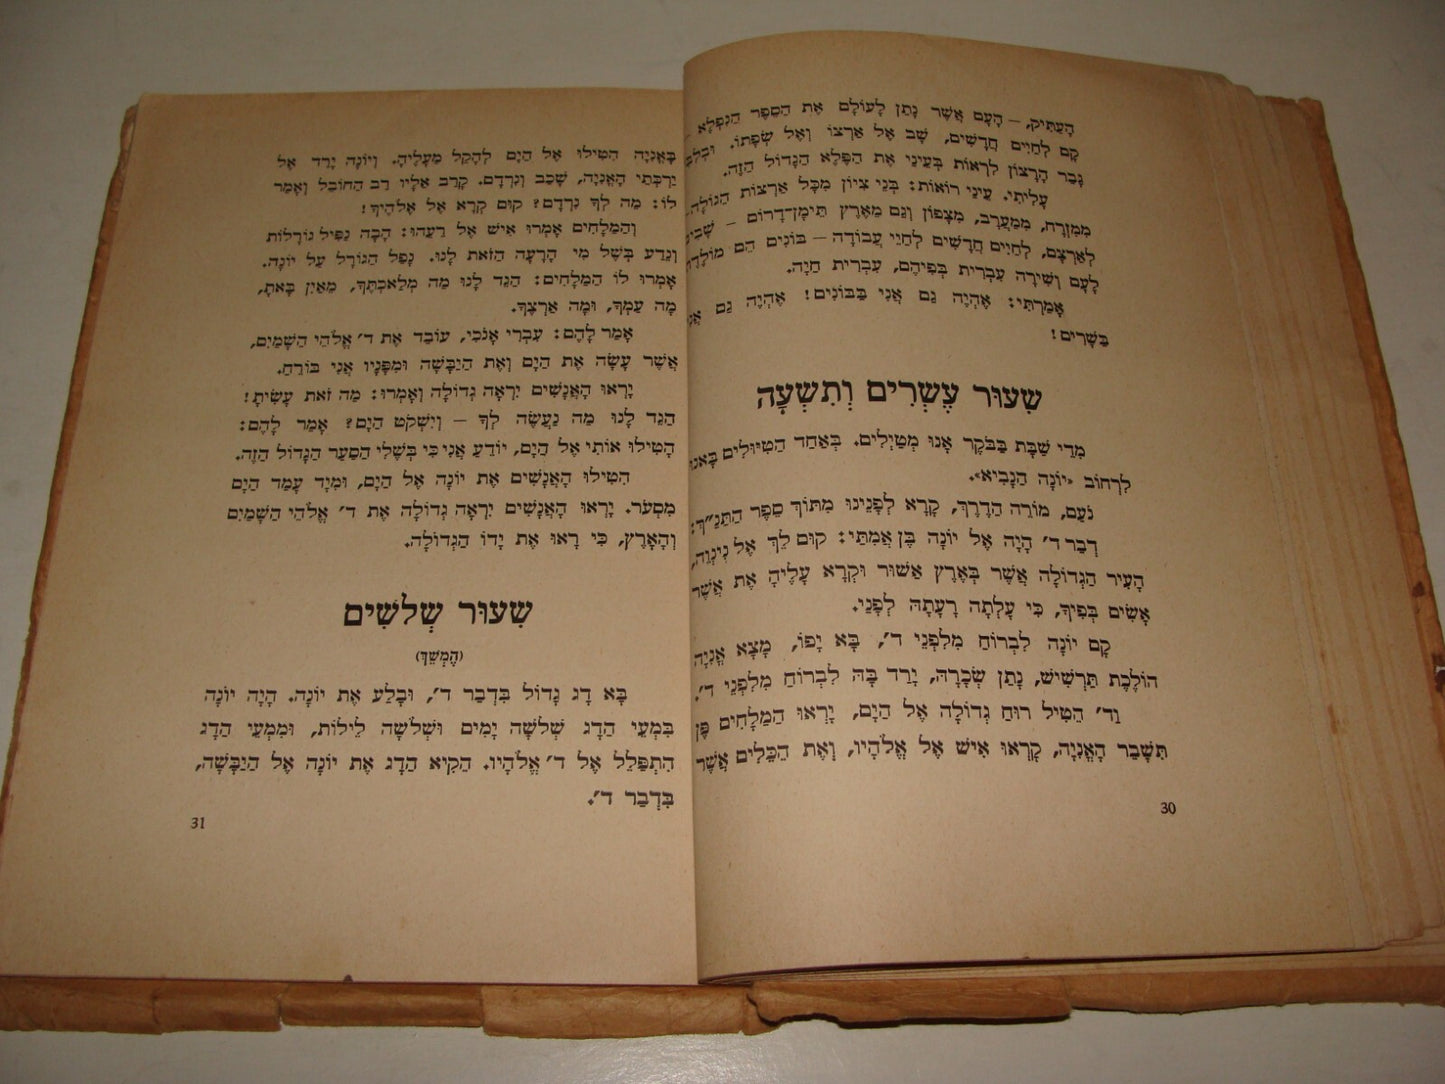 הָעַתִּיק, – הָעָם אֲשֶׁר נָתַן לָעוֹלָם אֶת הַסֵּפֶר הַנִּפְלָא –
קָם לְחַיִּים חֲדָשִׁים, שָׁב אֶל אַרְצוֹ וְאֶל שְׂפָתוֹ.
גָּבַר הָרָצוֹן לִרְאוֹת בְּעֵינַי אֶת הַפֶּלֶא הַגָּדוֹל הַזֶּה.
עָלִיתִי. עֵינַי רוֹאוֹת: בְּנֵי צִיּוֹן מִכָּל אַרְצוֹת הַגּוֹלָה,
מִמִּזְרָח, מִמַּעֲרָב, מִצָּפוֹן וְגַם מֵאֶרֶץ תֵּימָן־דָּרוֹם – שָׁבִים
לְאַרְצָם, לְחַיִּים חֲדָשִׁים לְחַיֵּי עֲבוֹדָה – בּוֹנִים הֵם מוֹלֶדֶת
לָעָם וְשִׁירָה עִבְרִית בְּפִיהֶם, עִבְרִית חַיָּה.
אָמַרְתִּי: אֶהְיֶה גַם אֲנִי בַּבּוֹנִים! אֶהְיֶה גַם אֲנִי
בַּשָּׁרִים!
שִׁעוּר עֶשְׂרִים וְתִשְׁעָה
מִדֵּי שַׁבָּת בַּבֹּקֶר אָנוּ מְטַיְּלִים. בְּאַחַד הַטִּיּוּלִים בָּאנוּ
לִרְחוֹב «יוֹנָה הַנָּבִיא».
נֹעַם, מוֹרֵה הַדֶּרֶךְ, קָרָא לְפָנֵינוּ מִתּוֹךְ סֵפֶר הַתַּנַ״ךְ:
דְּבַר ד׳ הָיָה אֶל יוֹנָה בֶּן אֲמִתַּי: קוּם לֵךְ אֶל נִינְוֵה,
הָעִיר הַגְּדוֹלָה אֲשֶׁר בְּאֶרֶץ אַשּׁוּר וּקְרָא עָלֶיהָ אֶת אֲשֶׁר
אָשִׂים בְּפִיךָ, כִּי עָלְתָה רָעָתָהּ לְפָנָי.
קָם יוֹנָה לִבְרוֹחַ מִלִּפְנֵי ד׳, בָּא יָפוֹ, מָצָא אֳנִיָּה
הוֹלֶכֶת תַּרְשִׁישׁ, נָתַן שְׂכָרָהּ, יָרַד בָּהּ לִבְרוֹחַ מִלִּפְנֵי ד׳.
וַד׳ הֵטִיל רוּחַ גְּדוֹלָה אֶל הַיָּם, יָרְאוּ הַמַּלָּחִים פֶּן
תִּשָּׁבֵר הָאֳנִיָּה, קָרְאוּ אִישׁ אֶל אֱלֹהָיו, וְאֶת הַכֵּלִים אֲשֶׁר
30
בָּאֳנִיָּה הֵטִילוּ אֶל הַיָּם לְהָקֵל מֵעָלֶיהָ. וְיוֹנָה יָרַד אֶל
יַרְכְּתֵי הָאֳנִיָּה, שָׁכַב וְנִרְדָּם. קָרַב אֵלָיו רַב הַחוֹבֵל וְאָמַר
לוֹ: מַה לְּךָ נִרְדָּם? קוּם קְרָא אֶל אֱלֹהֶיךָ!
וְהַמַּלָּחִים אָמְרוּ אִישׁ אֶל רֵעֵהוּ: הָבָה נַפִּיל גּוֹרָלוֹת
וְנֵדַע בְּשֶׁל מִי הָרָעָה הַזֹּאת לָנוּ. נָפַל הַגּוֹרָל עַל יוֹנָה.
אָמְרוּ לוֹ הַמַּלָּחִים: הַגֵּד לָנוּ מַה מְּלַאכְתֶּךָ, מֵאַיִן בָּאתָ,
מָה עַמְּךָ, וּמָה אַרְצֶךָ.
אָמַר לָהֶם: עִבְרִי אָנֹכִי, עוֹבֵד אֶת ד׳ אֱלֹהֵי הַשָּׁמַיִם,
אֲשֶׁר עָשָׂה אֶת הַיָּם וְאֶת הַיַּבָּשָׁה וּמִפָּנָיו אֲנִי בּוֹרֵחַ.
יָרְאוּ הָאֲנָשִׁים יִרְאָה גְדוֹלָה וְאָמְרוּ: מַה זֹּאת עָשִׂיתָ!
הַגֵּד לָנוּ מַה נַּעֲשֶׂה לְּךָ – וְיִשְׁקֹט הַיָּם? אָמַר לָהֶם:
הָטִילוּ אוֹתִי אֶל הַיָּם, יוֹדֵעַ אֲנִי כִּי בְּשֶׁלִּי הַסַּעַר הַגָּדוֹל הַזֶּה.
הֵטִילוּ הָאֲנָשִׁים אֶת יוֹנָה אֶל הַיָּם, וּמִיָּד עָמַד הַיָּם
מִסְעֹר. יָרְאוּ הָאֲנָשִׁים יִרְאָה גְדוֹלָה אֶת ד׳ אֱלֹהֵי הַשָּׁמַיִם
וְהָאָרֶץ, כִּי רָאוּ אֶת יָדוֹ הַגְּדוֹלָה.
שִׁעוּר שְׁלֹשִׁים
(הֶמְשֵׁךְ)
בָּא דָג גָּדוֹל בִּדְבַר ד׳, וּבָלַע אֶת יוֹנָה. הָיָה יוֹנָה
בִּמְעֵי הַדָּג שְׁלֹשָׁה יָמִים וּשְׁלֹשָׁה לֵילוֹת, וּמִמְּעֵי הַדָּג
הִתְפַּלֵּל אֶל ד׳ אֱלֹהָיו. הֵקִיא הַדָּג אֶת יוֹנָה אֶל הַיַּבָּשָׁה,
בִּדְבַר ד׳.
31